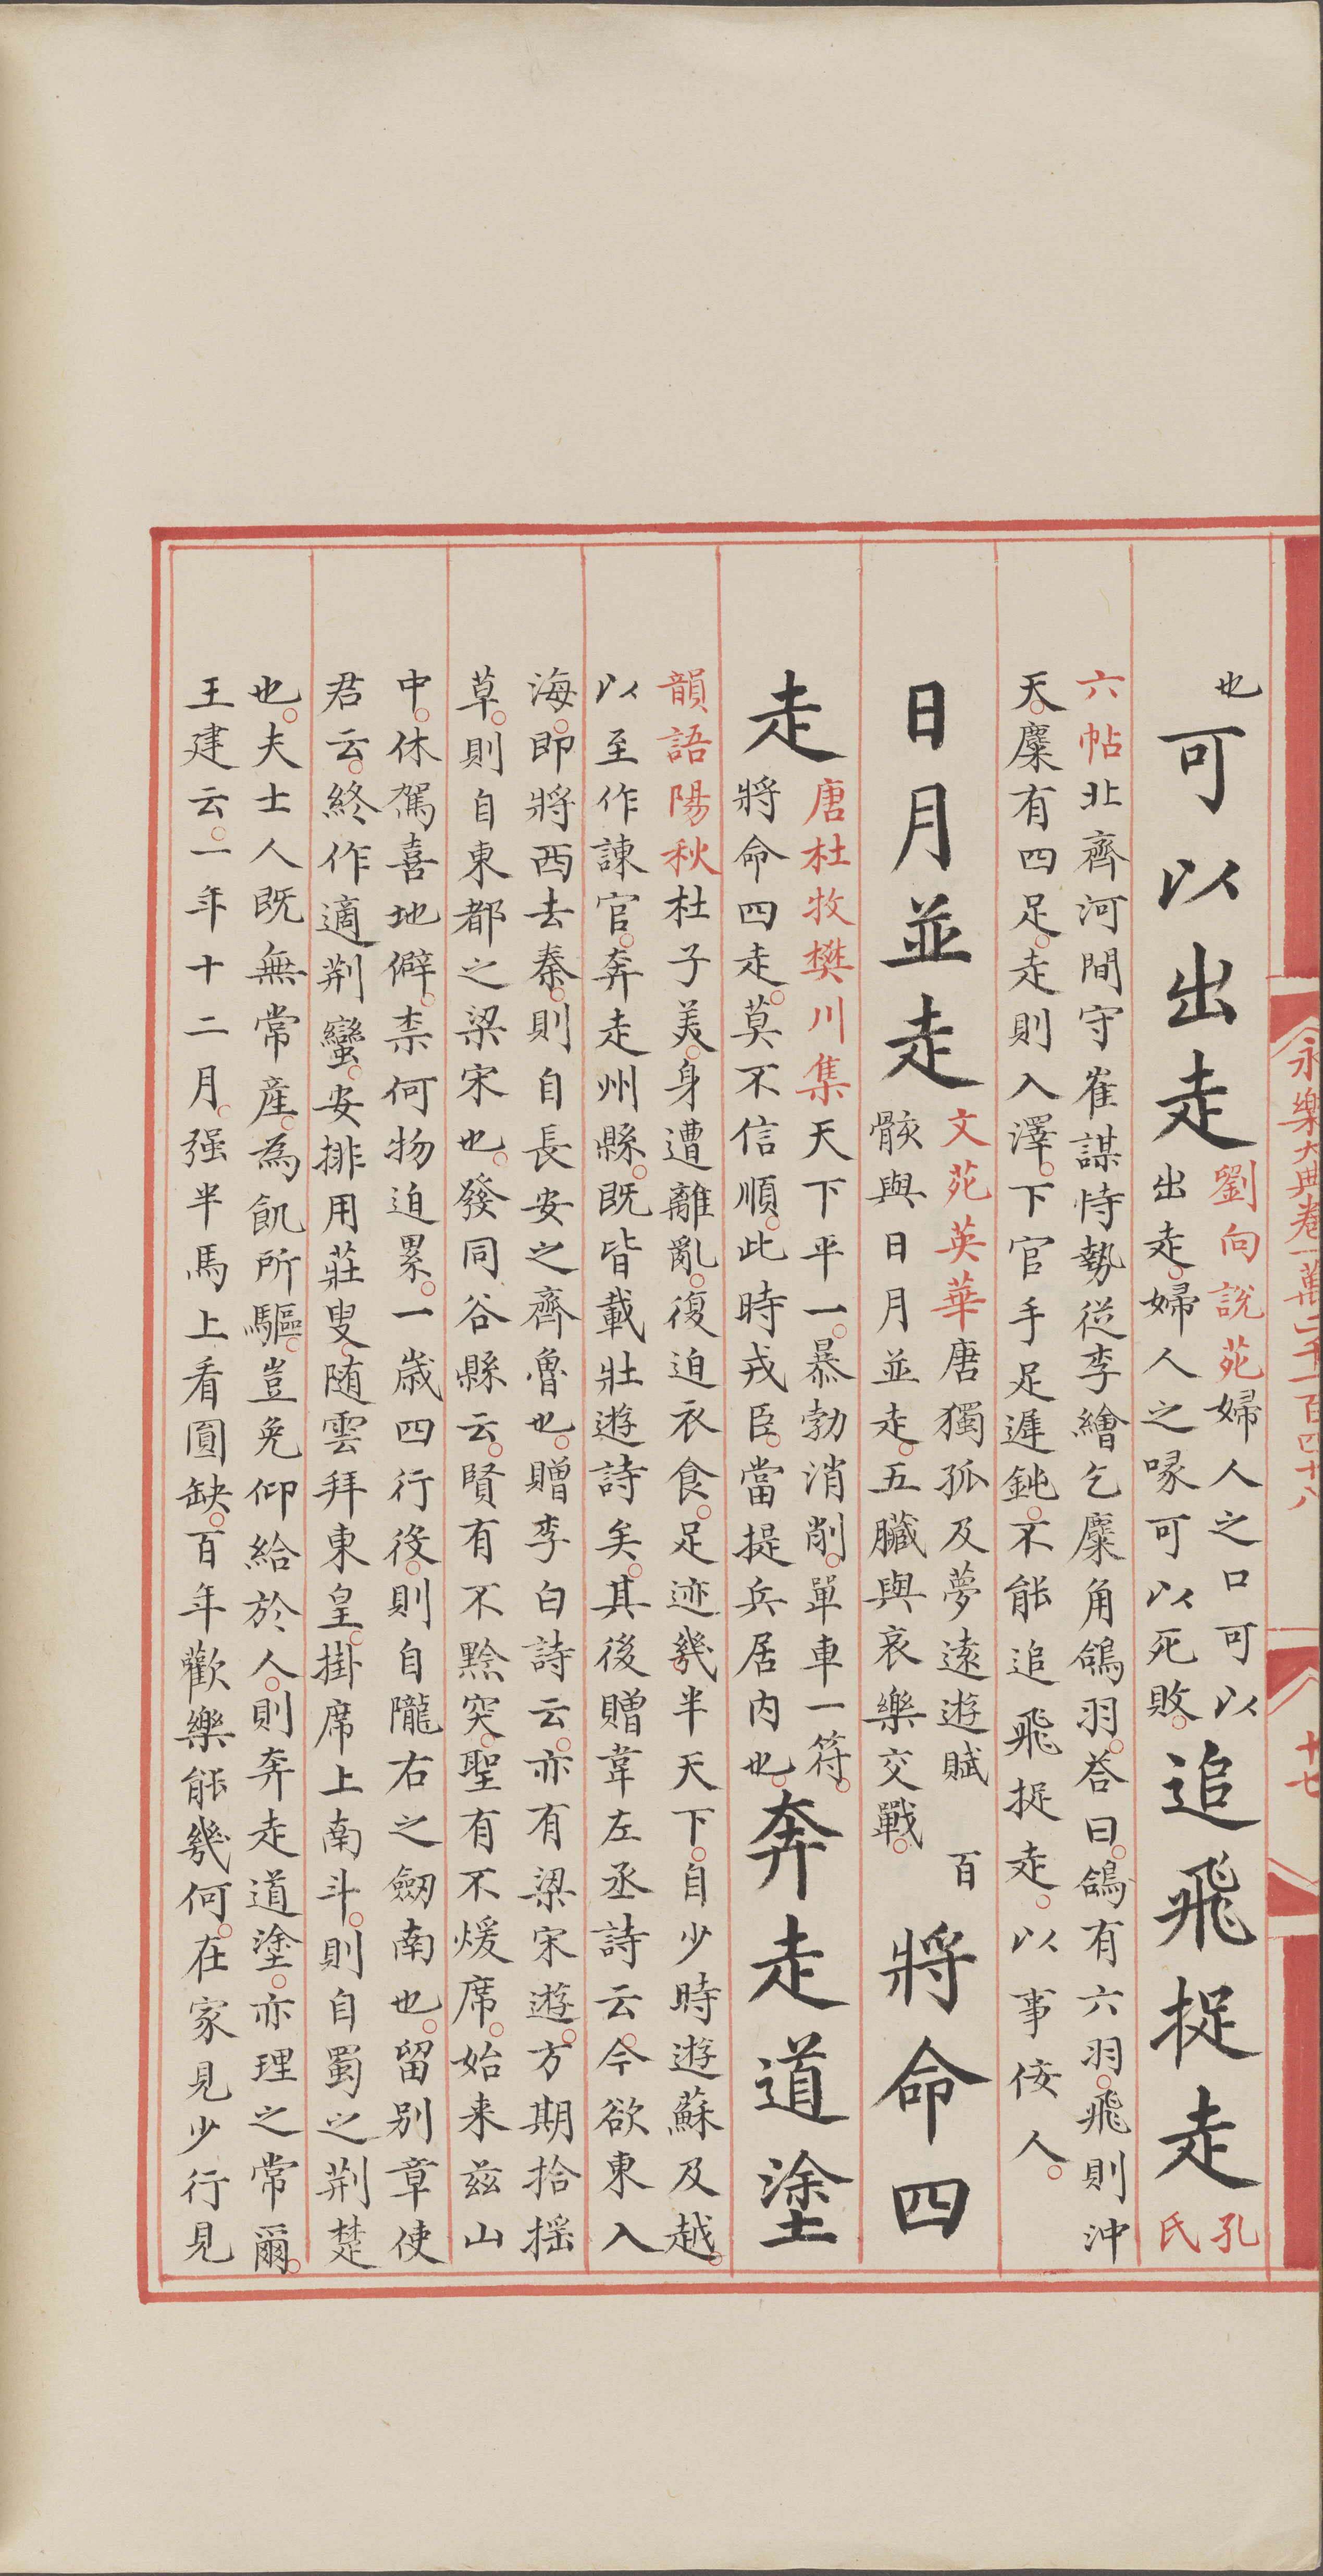 永樂大典卷一萬二千一百四十八
十七
也
可以出走
劉向說苑婦人之口可以
出走。婦人之喙可以死敗。
追飛捉走
孔
氏
六帖北齊河間守崔謀恃勢從李繪乞麋角鴿羽。荅曰。鴿有六羽。飛則沖
天。麋有四足。走則入澤。下官手足遲鈍。不能追飛捉走。以事佞人。
日月並走
文苑英華唐獨孤及夢遠遊賦 百
骸與日月並走。五臟與哀樂交戰。
將命四
走
唐杜牧樊川集天下平一。暴勃消削。單車一符。
將命四走。莫不信順。此時戎臣。當提兵居内也。
奔走道塗
韻語陽秋杜子美。身遭離亂。復迫衣食。足迹幾半天下。自少時遊蘇及越。
以至作諫官。奔走州縣。既皆載壯遊詩矣。其後贈韋左丞詩云。今欲東入
海。即將西去秦。則自長安之齊魯也。贈李白詩云。亦有梁宋遊。方期拾摇
草。則自東都之梁宋也。發同谷縣云。賢有不黔突。聖有不煖席。始来兹山
中。休駕喜地僻。柰何物迫累。一歲四行役。則自隴右之劒南也。留别章使
君云。終作適荆蠻。安排用莊叟。随雲拜東皇。掛席上南斗。則自蜀之荆楚
也。夫士人既無常産。為飢所驅。豈免仰給於人。則奔走道塗。亦理之常爾。
王建云。一年十二月。强半馬上看圓缺。百年歡樂能幾何。在家見少行見